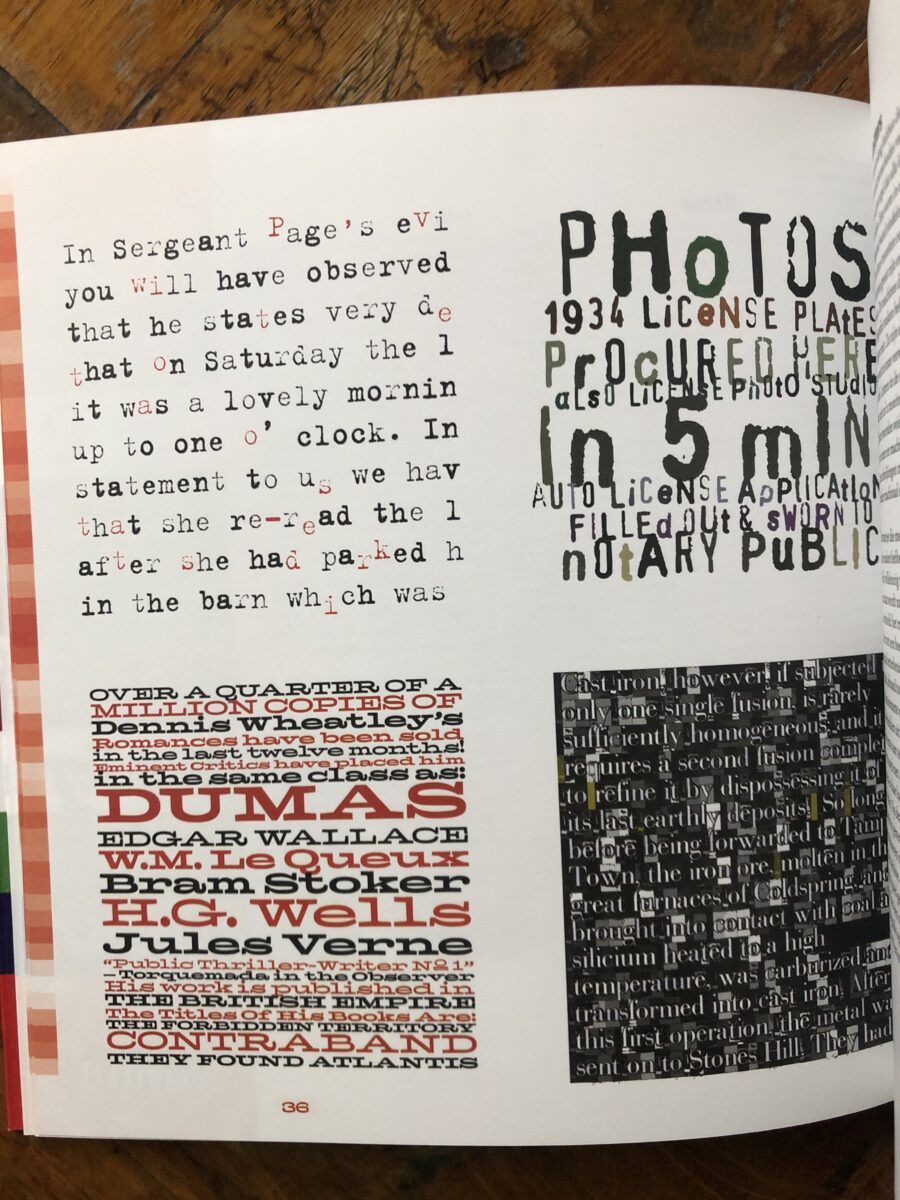 In Sergeant Page's evi
you will have observed
that he states very de
that on Saturday the l
it was a lovely mornin
up to one o' clock. In
statement to us we hav
that she re-read the l
after she had parked h
in the barn which was
PHoTOS
1934 LiCeNSE PLAtES
PrOcURED HERE
aLsO LiCENSE PhOtO STUdIO
In 5 mIN
AUTO LiCeNSE ApPlICAtIoN
FILLEd OUt & sWORN TO
nOtARY PuBLIC
OVER A QUARTER OF A
MILLION COPIES OF
Dennis Wheatley's
Romances have been sold
in the last twelve months!
Eminent Critics have placed him
in the same class as:
DUMAS
EDGAR WALLACE
W.M. Le Queux
Bram Stoker
H.G. Wells
Jules Verne
"Public Thriller-Writer Nº1"
– Torquemada in the Observer
His work is published in
THE BRITISH EMPIRE
The Titles Of His Books Are:
THE FORBIDDEN TERRITORY
CONTRABAND
THEY FOUND ATLANTIS
Cast iron, however, if subjected
only one single fusion, is rarely
sufficiently homogeneous, and it
requires a second fusion complet
to refine it by dispossessing it of
its last earthly deposits. So long
before being forwarded to Tamp
Town, the iron ore, molten in th
great furnaces of Coldspring, and
brought into contact with coal a
silicium heated to a high
temperature, was carburized and
transformed into cast iron. After
this first operation, the metal wa
sent on to Stones Hill. They had
36